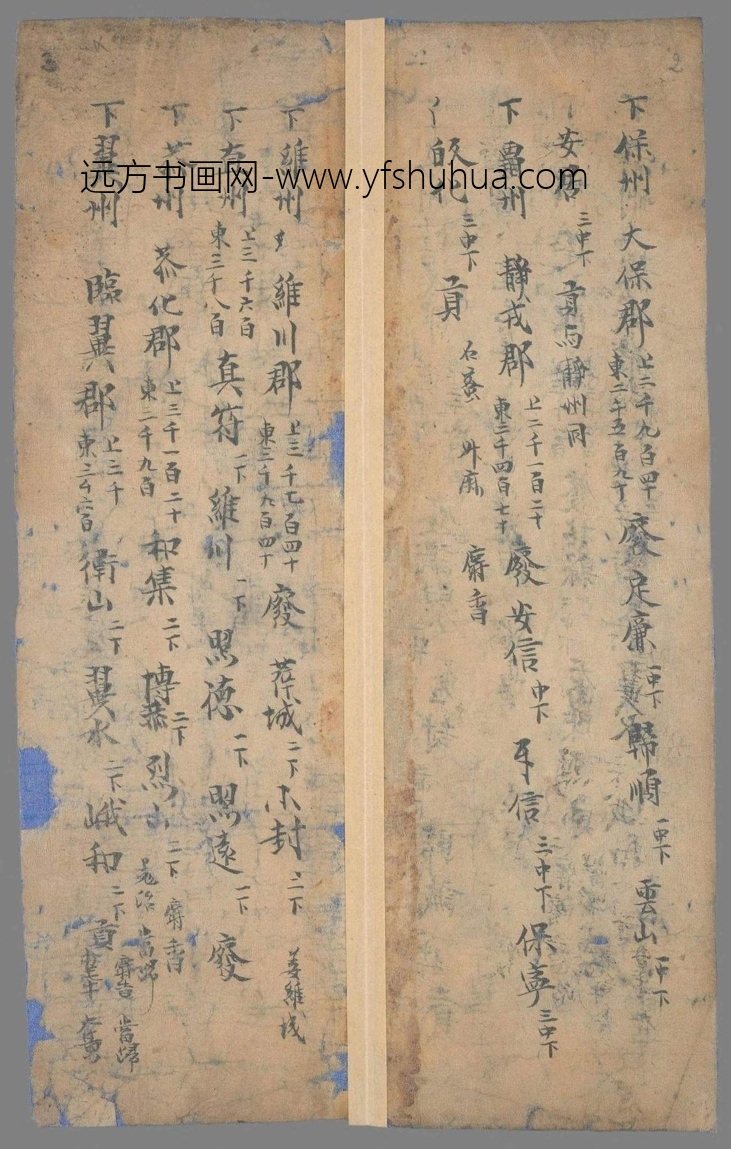 下保州 大保郡 上二千九百四十 東二千五百九十 廢 定廉 一中下 歸順 一中下 雲山 一中下
安居 三中下 貢与靜州同
下霸州 靜戎郡 上二千一百二十 東三千四百七十 廢 安信 中下 牙信 三中下 保寧 三中下
歸化 三中下 貢 石蜜 升麻 麝香
下維州 維川郡 上三千七百四十 東三千九百四十 廢 薛城 二下 小封 二下 姜維城
下真州 上三千六百 東三千八百 真符 一下 維川 一下 照德 一下 照遠 一下 廢
下恭州 恭化郡 上三千一百二十 東三千九百 和集 二下 博恭 二下 烈山 二下 麝香 當歸 羌活
下翼州 臨翼郡 上三千 東三千六百 衛山 二下 翼水 二下 峨和 二下 貢 麝香 當歸 大黃
3
2
远方书画网-www.yfshuhua.com